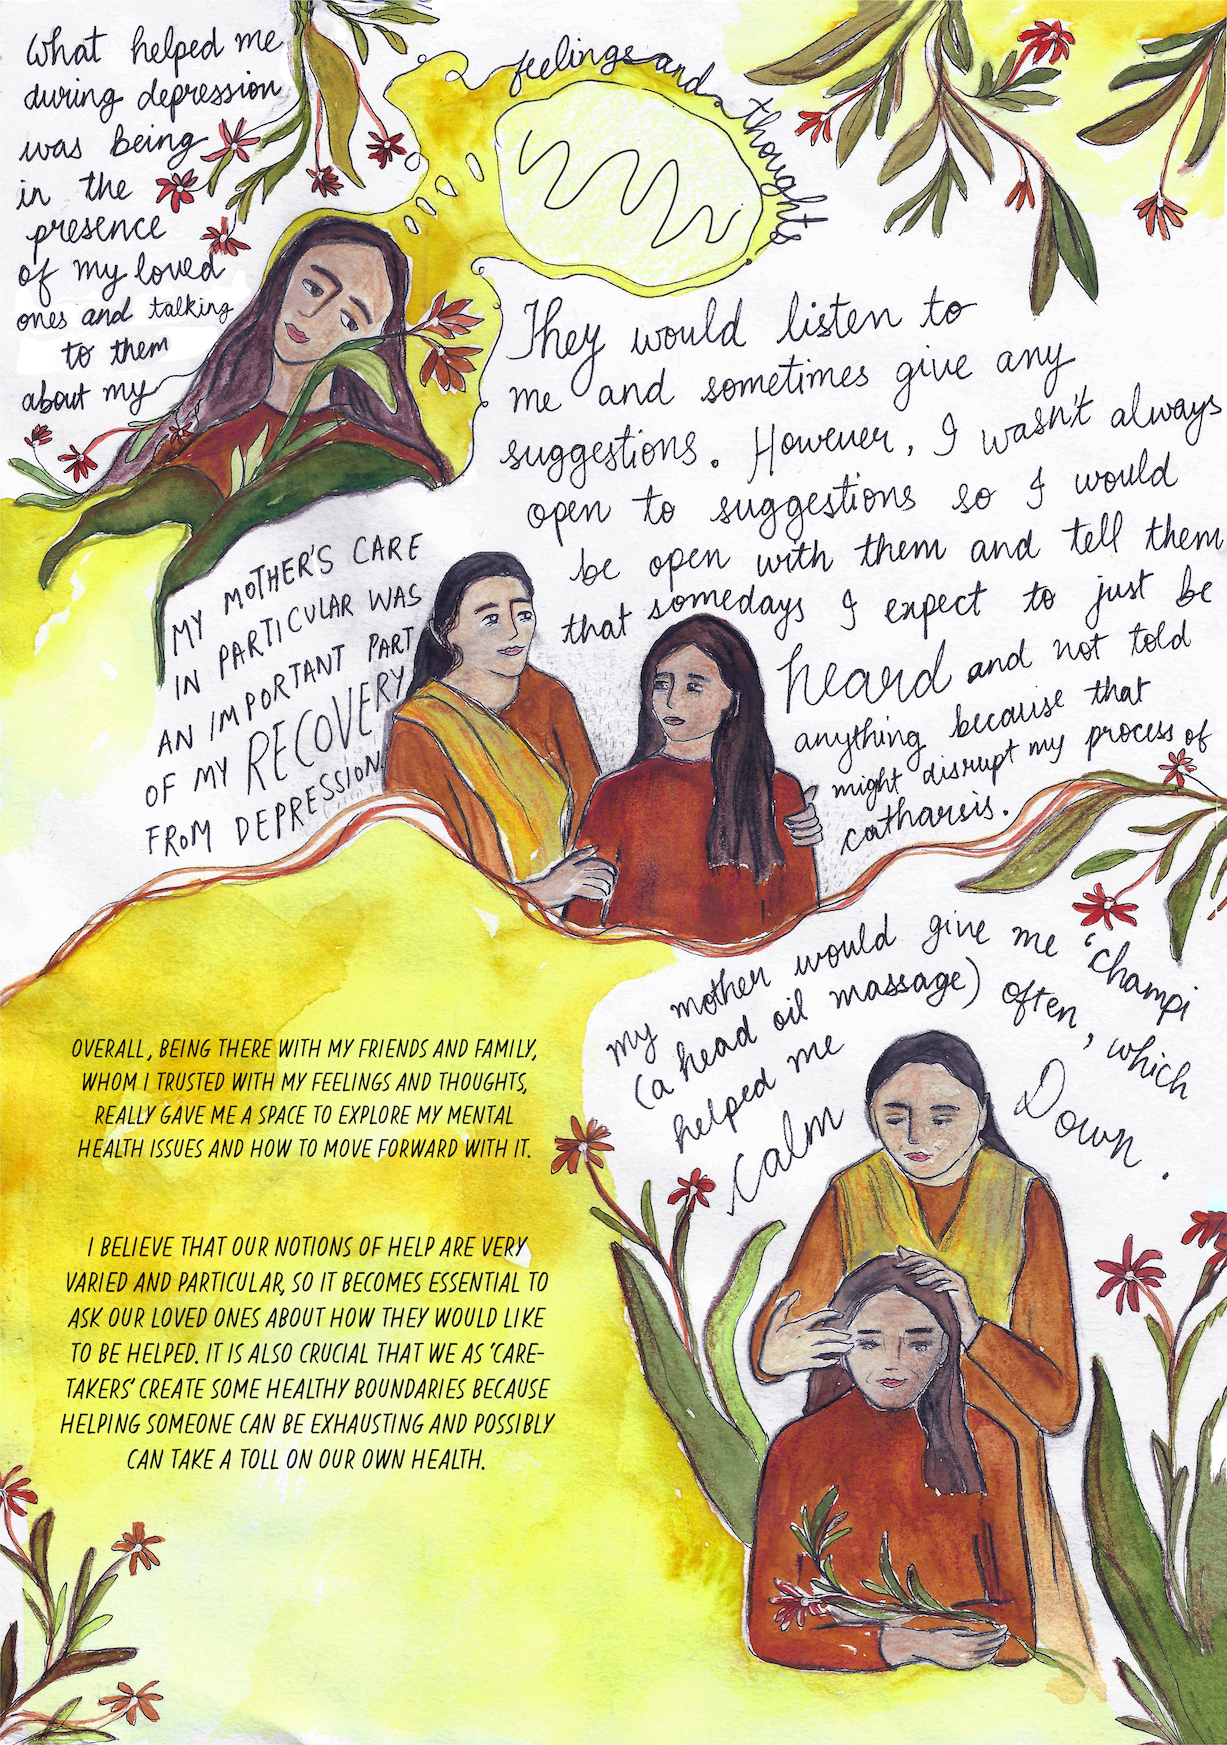 What helped me
during depression
was being
in the
presence
of my loved
ones and talking
to them
about my
feelings and thoughts
They would listen to
me and sometimes give any
suggestions. However, I wasn't always
open to suggestions so I would
be open with them and tell them
that somedays I expect to just be
heard and not told
anything because that
might disrupt my process of
catharsis.
MY MOTHER'S CARE
IN PARTICULAR WAS
AN IMPORTANT PART
OF MY RECOVERY
FROM DEPRESSION
my mother would give me 'champi
(a head oil massage) often, which
helped me
calm Down.
OVERALL, BEING THERE WITH MY FRIENDS AND FAMILY,
WHOM I TRUSTED WITH MY FEELINGS AND THOUGHTS,
REALLY GAVE ME A SPACE TO EXPLORE MY MENTAL
HEALTH ISSUES AND HOW TO MOVE FORWARD WITH IT.
I BELIEVE THAT OUR NOTIONS OF HELP ARE VERY
VARIED AND PARTICULAR, SO IT BECOMES ESSENTIAL TO
ASK OUR LOVED ONES ABOUT HOW THEY WOULD LIKE
TO BE HELPED. IT IS ALSO CRUCIAL THAT WE AS 'CARE-
TAKERS' CREATE SOME HEALTHY BOUNDARIES BECAUSE
HELPING SOMEONE CAN BE EXHAUSTING AND POSSIBLY
CAN TAKE A TOLL ON OUR OWN HEALTH.